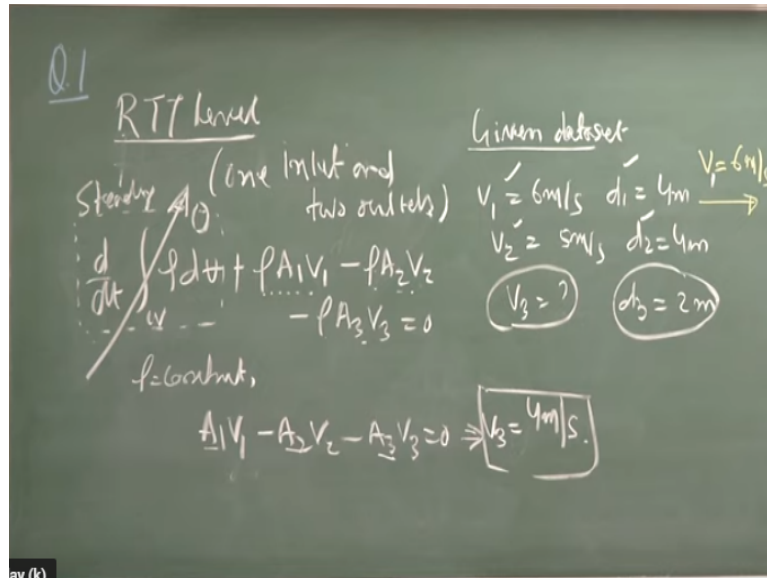 Q.1
RTT
(one inlet and
two outlets)
Steady
0
d/dt ∫ ρd∀ + ρA₁V₁ - ρA₂V₂
CV
- ρA₃V₃ = 0
ρ=constant,
A₁V₁ - A₂V₂ - A₃V₃ = 0 ⇒ V₃ = 4m/s.
Given dataset
V₁ = 6m/s d₁ = 4m
V₂ = 5m/s d₂ = 4m
V₃ = ? d₃ = 2m
V₁ = 6m/s
ay (k)